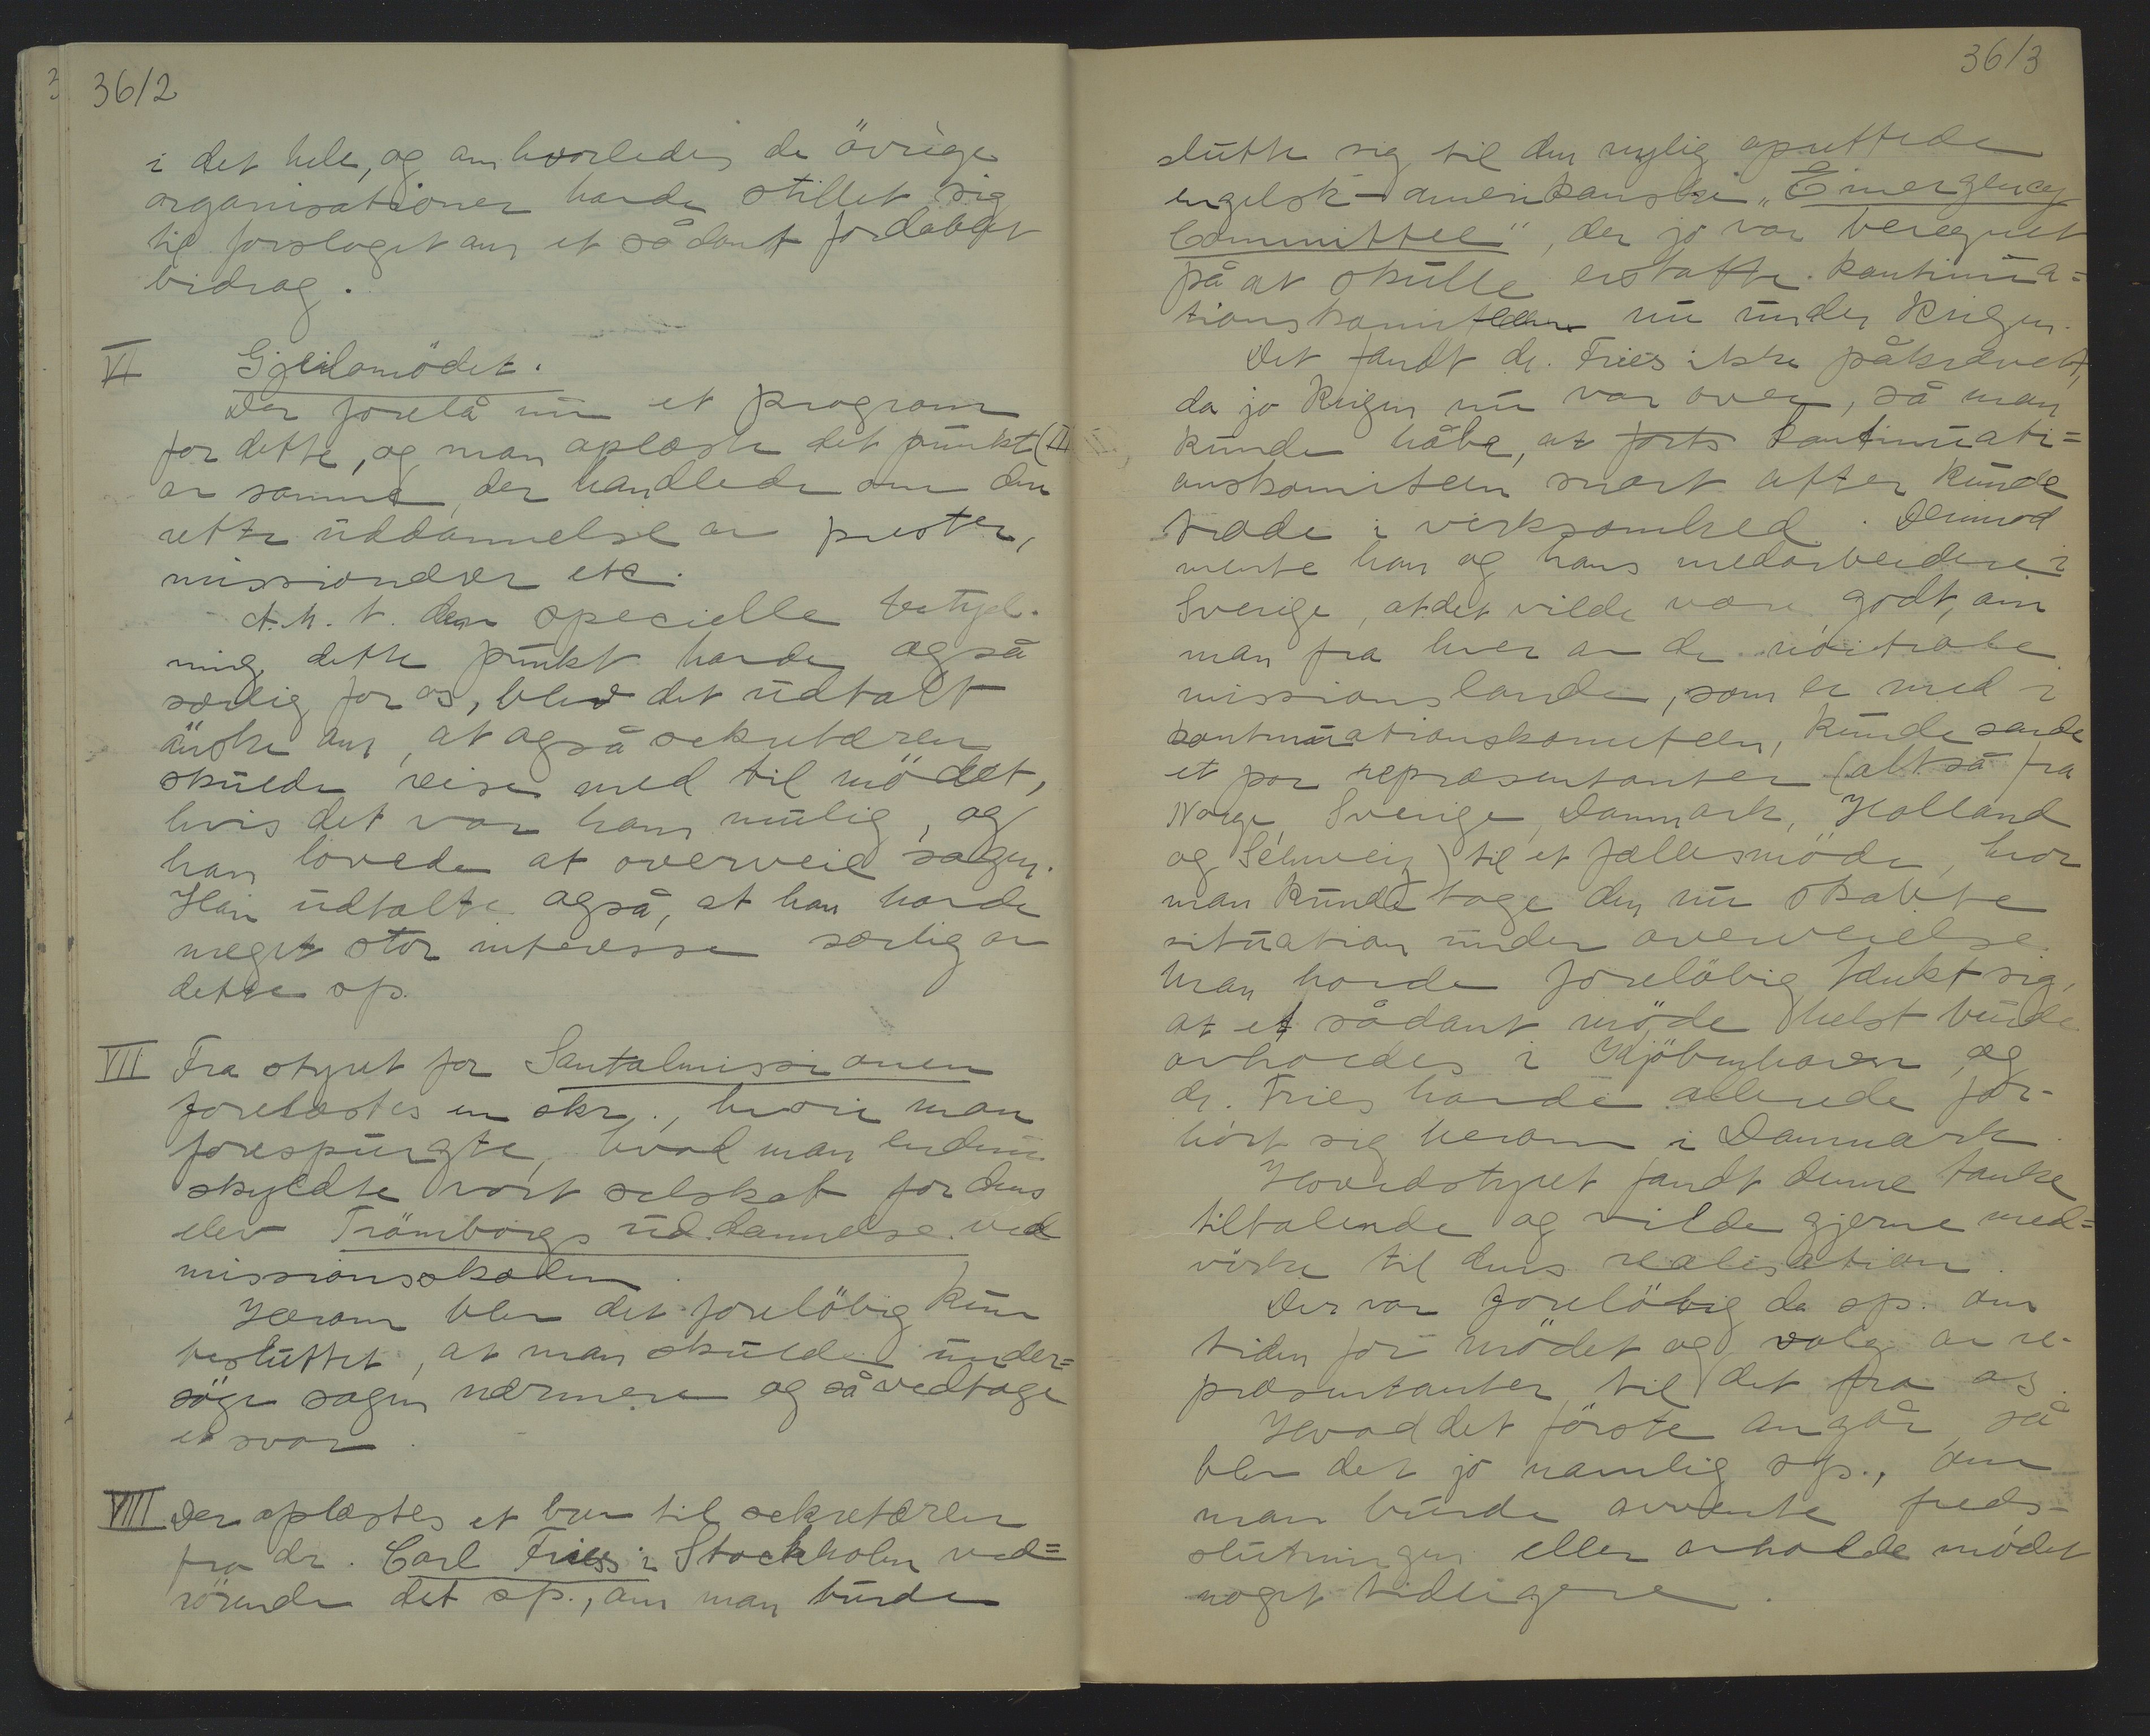 36/2
i det hele, og om hvorledes de övrige
organisationer havde stillet sig
til forslaget om et sådant fordoblet
bidrag.
VI Gjeilomödet.
Der forelå nu et program
for dette, og man oplæste det punkt (II
av samme, der handlede om den
rette uddannelse av prester,
missionærer etc.
A. h. t. den specielle betyd-
ning dette punkt havde også
særlig for os, blev det udtalt
önske om, at også sekretæren
skulde reise med til mödet,
hvis det var ham mulig, og
han lovede at overveie sagen.
Han udtalte også, at han havde
meget stor interesse særlig av
dette sp.
VII Fra styret for Santalmissionen
forelæstes en skr., hvori man
forespurgte, hvad man endnu
skyldte vort selskab for dens
elev Trömborgs uddannelse ved
missionsskolen.
Herom blev det foreløbig kun
besluttet, at man skulde under=
söge sagen nærmere og så vedtage
et svar.
VIII Der oplæstes et brev til sekretæren
fra dr. Carl Fries i Stockholm ved=
rörende det sp., om man burde
36/3
slutte sig til den nylig oprettede
engelsk-amerikanske "Emergency
Committee", der jo var beregnet
på at skulle erstatte kontinua=
tionskomiteen nu under krigen.
Det fandt dr. Fries ikke påkrævet,
da jo krigen nu var over, så man
kunde håbe, at forts kontinuati=
onskomiteen snart atter kunde
træde i virksomhed. Derimod
mente han og hans medarbeidere i
Sverige, at det vilde være godt, om
man fra hver av de nöitrale
missionslande, som er med i
kontinuationskomiteen, kunde sende
et par repræsentanter (altså fra
Norge, Sverige, Danmark, Holland
og Schweiz) til et fællesmöde, hvor
man kunde tage den nu skabte
situation under overveielse.
Man havde foreløbig tænkt sig,
at et sådant möde helst burde
avholdes i Kjöbenhavn, og
dr. Fries havde allerede for-
hört sig herom i Danmark.
Hovedstyret fandt denne tanke
tiltalende og vilde gjerne med=
virke til dens realisation.
Der var foreløbig da sp. om
tiden for mödet og valg av re-
præsentanter til det fra os.
Hvad det förste angår, så
blev det jo nemlig sp., om
man burde avvente freds-
slutningen eller avholde mödet
noget tidligere.